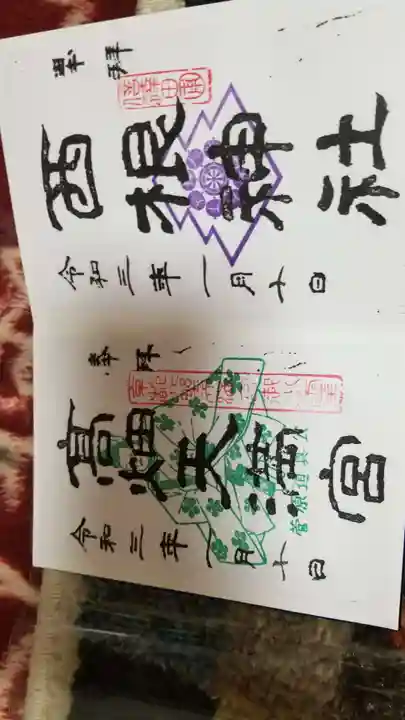 奉拝
西根神社
令和三年一月十日
奉拝
高畑天満宮
令和三年一月十日
菅原道真